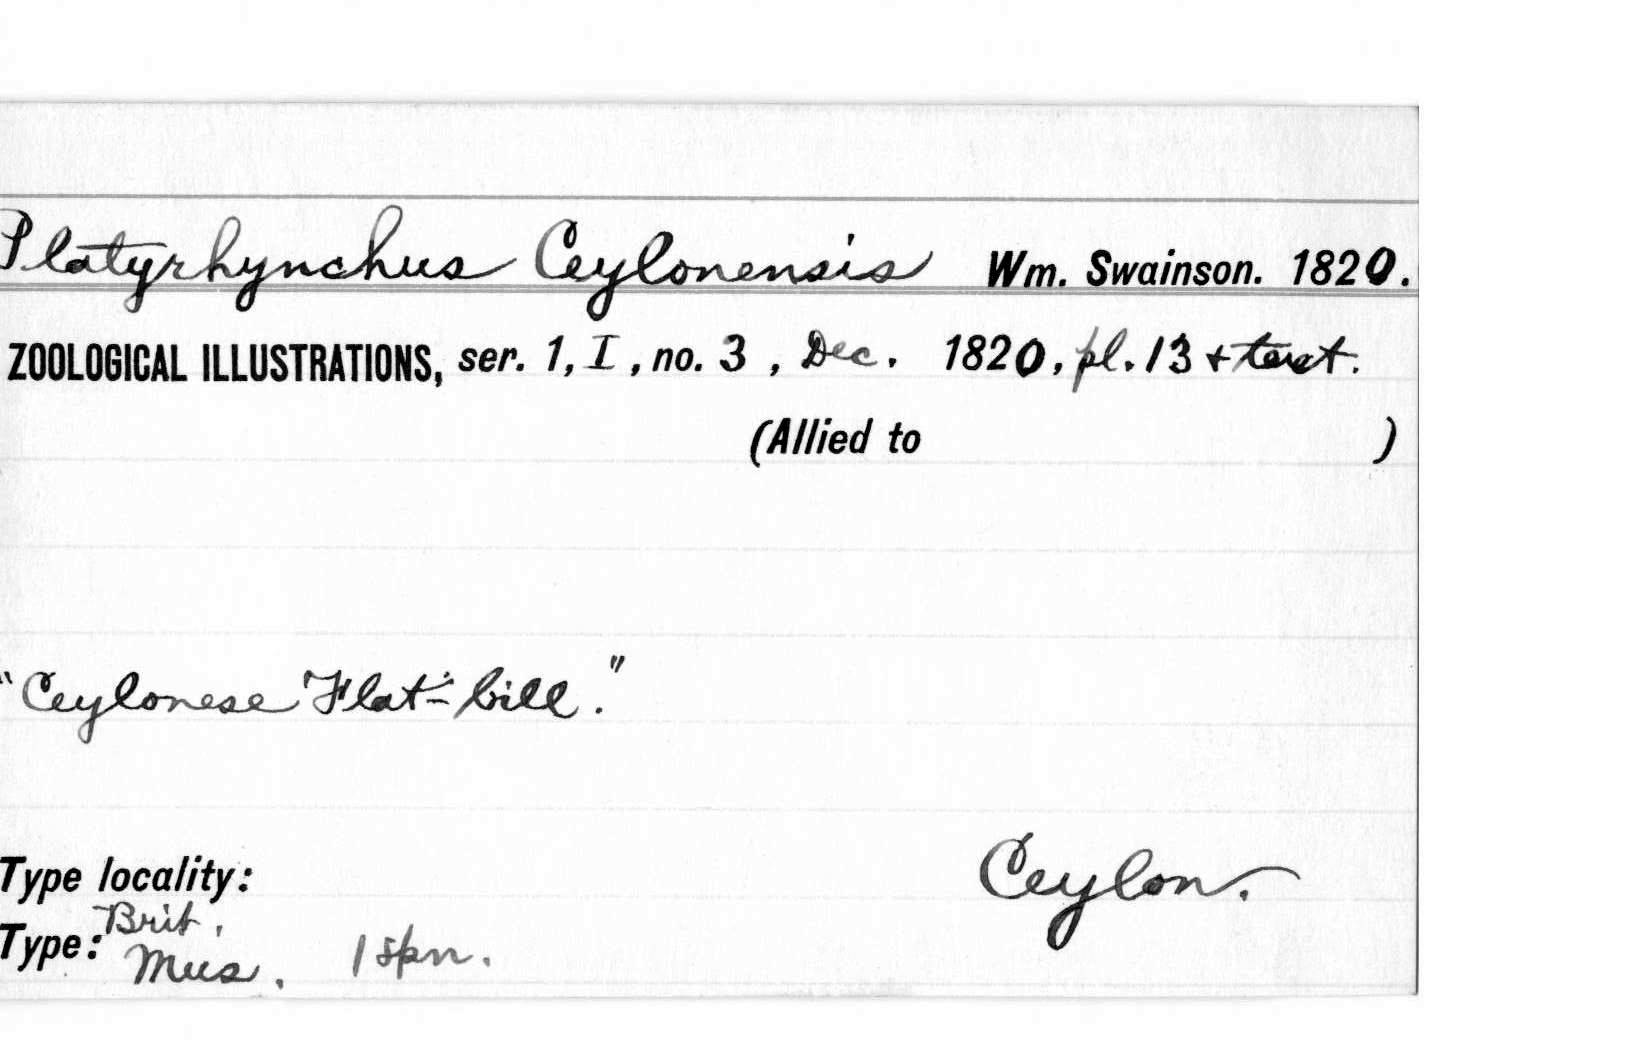 Platyrhynchus Ceylonensis Wm. Swainson. 1820.
ZOOLOGICAL ILLUSTRATIONS, ser. 1, I, no. 3, Dec. 1820, pl. 13 + text.
(Allied to )
"Ceylonese Flat-bill."
Type locality: Ceylon.
Type: Brit. Mus. 1 spn.